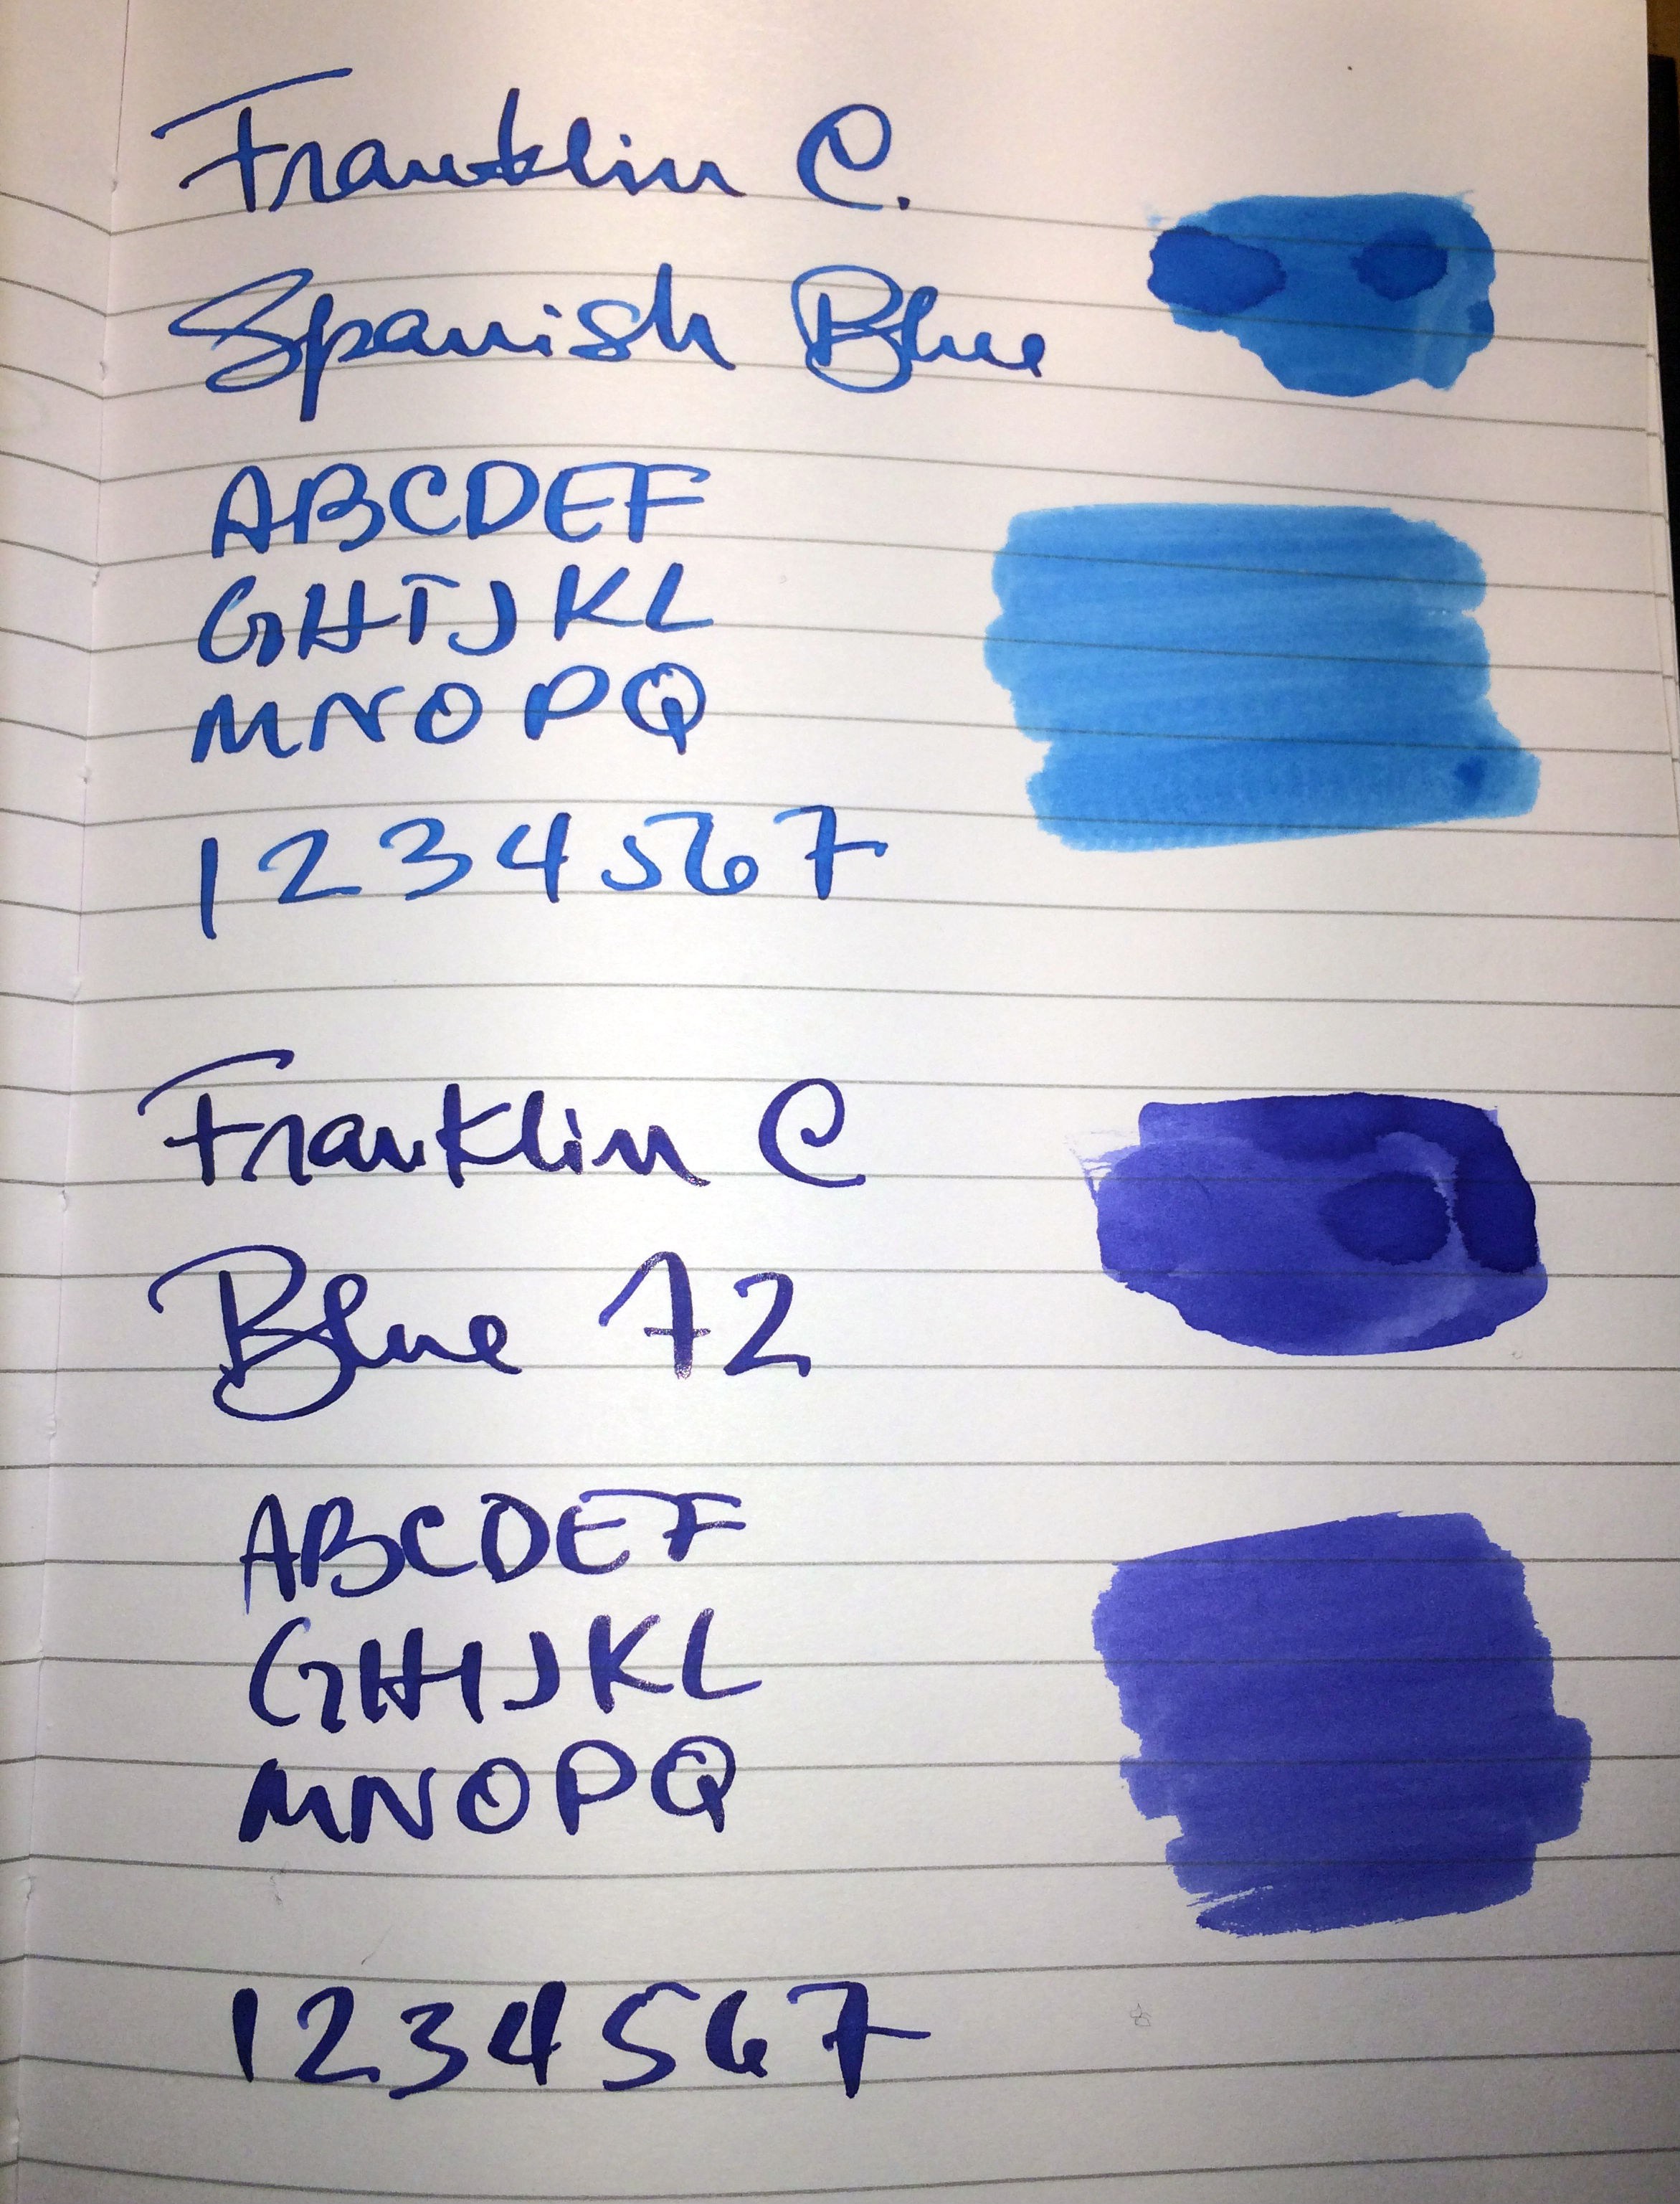 Franklin C.
Spanish Blue
ABCDEF
GHIJKL
MNOPQ
1234567
Franklin C
Blue 72
ABCDEF
GHIJKL
MNOPQ
1234567